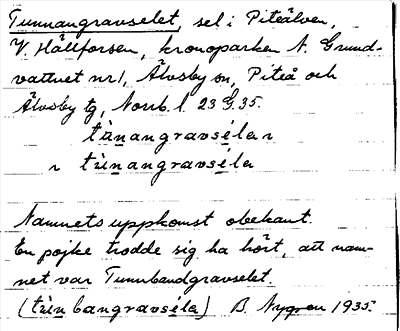 Tunnangravselet, sel i Piteälven,
V. Hällforsen, kronoparken N. Grund-
vattnet nr 1, Älvsby sn, Piteå och
Älvsby tg, Norrb. l. 23 G. 35.
tànangravséla ~
~ tùnangravséla
Namnets uppkomst obekant.
En pojke trodde sig ha hört, att nam-
net var Tunnbandgravselet.
(tùnbangravséla) B. Nygren 1935.